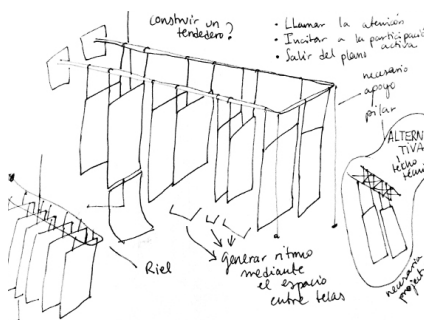 construir un
tendedero?
• Llamar la atención
• Incitar a la participació
• Salir del plano activa
necesario
apoyo
pilar
ALTERNA
TIVA
techo
técni
Riel
generar ritmo
mediante
el espacio
entre telas
necesaria
project